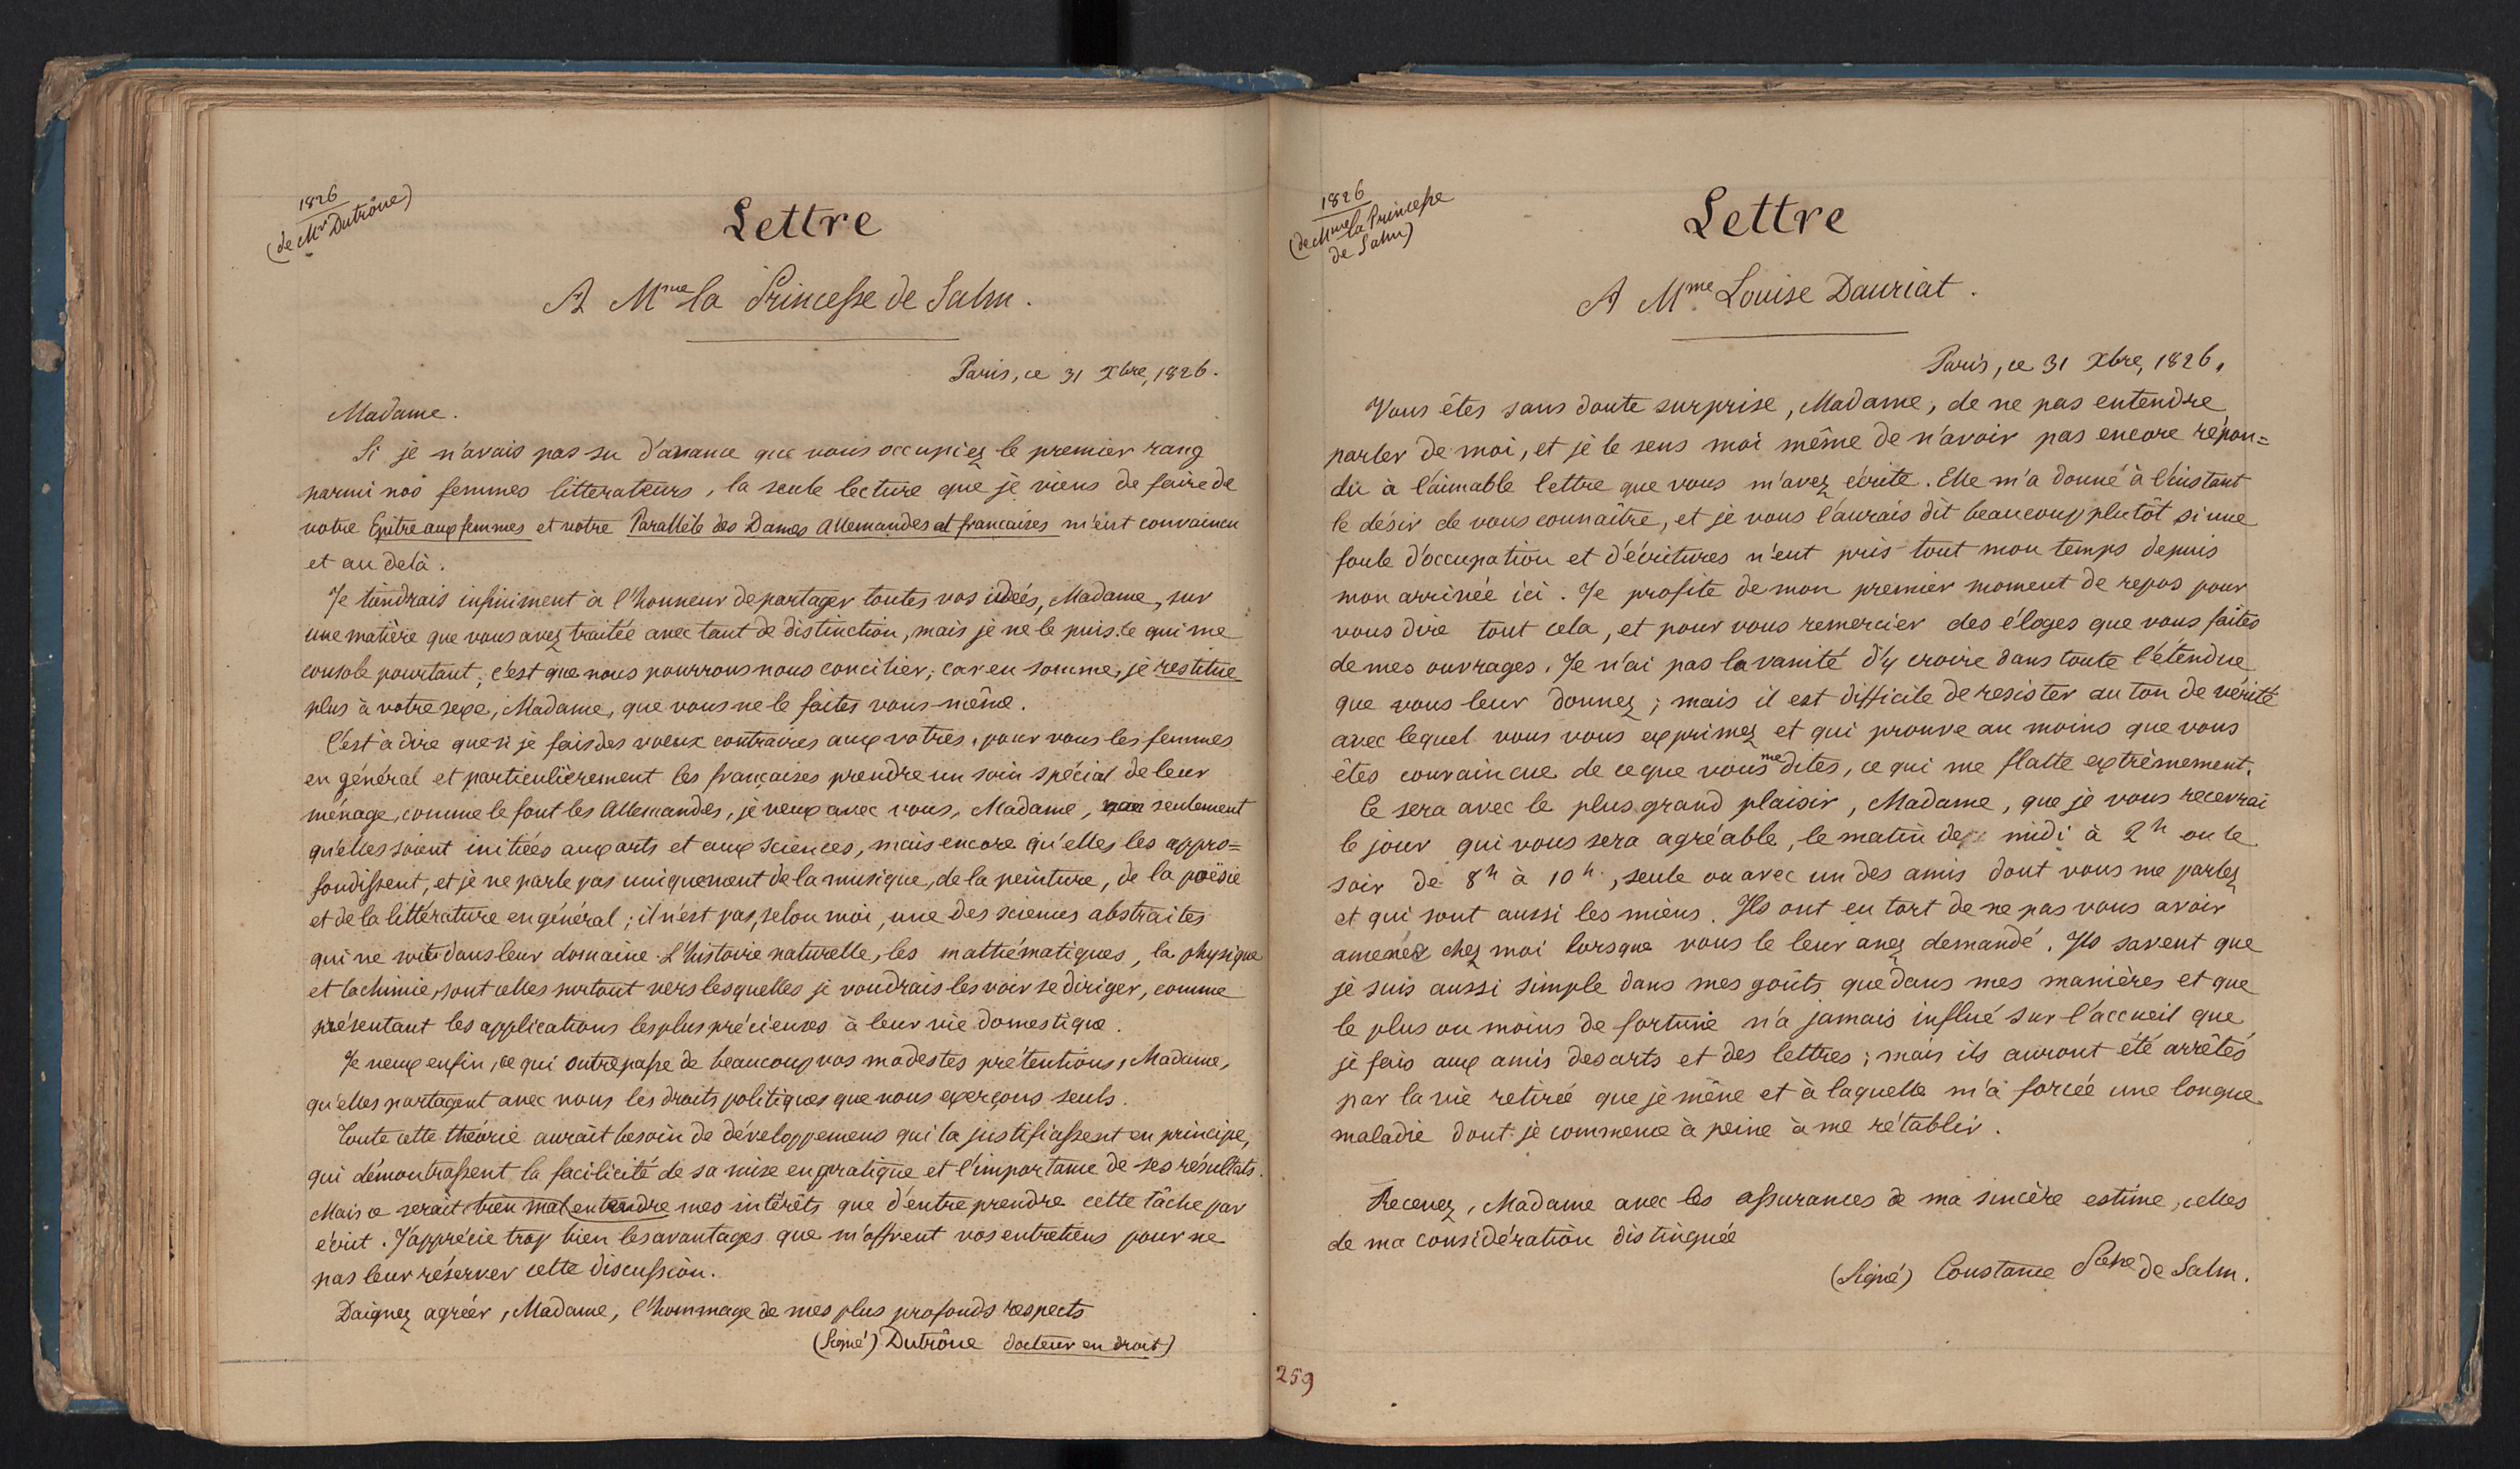 1826
(de Mr Dutrône)
Lettre
A Mme la Princesse de Salm.
Paris, ce 31 Xbre, 1826.
Madame.
Si je n'avais pas su d'avance que vous occupiez le premier rang
parmi nos femmes litterateurs, la seule lecture que je viens de faire de
votre Epitre aux femmes et votre Parallèle des Dames Allemandes et francaises m'eut convaincu
et au delà.
Je tiendrais infiniment à l'honneur de partager toutes vos idées, Madame, sur
une matière que vous avez traitée avec tant de distinction, mais je ne le puis. Ce qui me
console pourtant, c'est que nous pourrons nous concilier; car en somme, je restitue
plus à votre sexe, Madame, que vous ne le faites vous-même.
C'est à dire que si je fais des voeux contraires aux votres, pour vous les femmes
en général et particulièrement les françaises prendre un soin spécial de leur
ménage, comme le font les Allemandes, je veux avec vous, Madame, non seulement
qu'elles soient initiées aux arts et aux sciences, mais encore qu'elles les appro=
fondissent, et je ne parle pas uniquement de la musique, de la peinture, de la poësie
et de la littérature en général; il n'est pas, selon moi, une des sciences abstraites
qui ne soit dans leur domaine. L'histoire naturelle, les mathématiques, la physique
et la chimie, sont celles surtout vers lesquelles je voudrais les voir se diriger, comme
présentant les applications les plus précieuses à leur vie domestique.
Je veux enfin, ce qui outrepasse de beaucoup vos modestes prétentions, Madame,
qu'elles partagent avec nous les droits politiques que nous exerçons seuls.
Toute cette théorie aurait besoin de développemens qui la justifiassent en principe,
qui démontrassent la facilicité de sa mise en pratique et l'importance de ses résultats.
Mais ce serait bien mal entendre mes intérêts que d'entreprendre cette tâche par
écrit. J'apprécie trop bien les avantages que m'offrent vos entretiens pour ne
pas leur réserver cette discussion.
Daignez agréer, Madame, l'hommage de mes plus profonds respects
(Signé) Dutrône docteur en droit)
1826
(de Mme la Princesse
de Salm)
Lettre
A Mme Louise Dauriat.
Paris, ce 31 Xbre, 1826.
Vous êtes sans doute surprise, Madame, de ne pas entendre
parler de moi, et je le sens moi même de n'avoir pas encore répon=
du à l'aimable lettre que vous m'avez écrite. Elle m'a donné à l'instant
le désir de vous connaître, et je vous l'aurais dit beaucoup plutôt si une
foule d'occupation et d'écritures n'eut pris tout mon temps depuis
mon arrivée ici. Je profite de mon premier moment de repos pour
vous dire tout cela, et pour vous remercier des éloges que vous faites
de mes ouvrages. Je n'ai pas la vanité d'y croire dans toute l'étendue
que vous leur donnez; mais il est difficile de resister au ton de vérité
avec lequel vous vous exprimez et qui prouve au moins que vous
êtes convaincue de ce que vous me dites, ce qui me flatte extrèmement.
Ce sera avec le plus grand plaisir, Madame, que je vous recevrai
le jour qui vous sera agréable, le matin de midi à 2h ou le
soir de 8h à 10h, seule ou avec un des amis dont vous me parlez
et qui sont aussi les miens. Ils ont eu tort de ne pas vous avoir
amenée chez moi lorsque vous le leur avez demandé. Ils savent que
je suis aussi simple dans mes goûts que dans mes manières et que
le plus ou moins de fortune n'a jamais influé sur l'accueil que
je fais aux amis des arts et des lettres; mais ils auront été arrêtés
par la vie retirée que je mène et à laquelle m'a forcée une longue
maladie dont je commence à peine à me rétablir.
Recevez, Madame avec les assurances de ma sincère estime, celles
de ma considération distinguée
(Signé) Constance Pcesse de Salm.
259